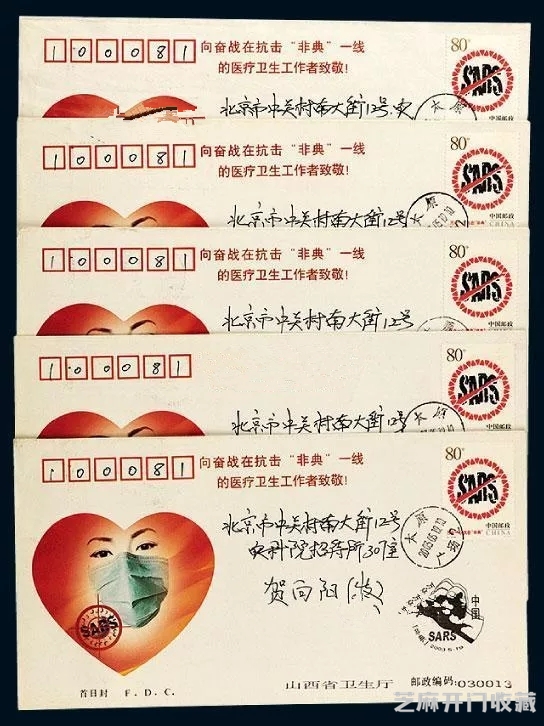 100081
向奋战在抗击“非典”一线
的医疗卫生工作者致敬!
80分
SARS
中国邮政
北京市中关村南大街12号
太原
100081
向奋战在抗击“非典”一线
的医疗卫生工作者致敬!
80分
SARS
中国邮政
CHINA
北京市中关村南大街12号
太原
100081
向奋战在抗击“非典”一线
的医疗卫生工作者致敬!
80分
SARS
中国邮政
CHINA
北京市中关村南大街12号
太原
100081
80分
SARS
中国邮政
北京市中关村南大街12号
太原
100081
向奋战在抗击“非典”一线
的医疗卫生工作者致敬!
80分
SARS
中国邮政
CHINA
北京市中关村南大街12号
农科院招待所307室
贺向阳(收)
太原
广场
SARS
中国
SARS
首日封 F.D.C.
山西省卫生厅 邮政编码:030013
芝麻开门收藏